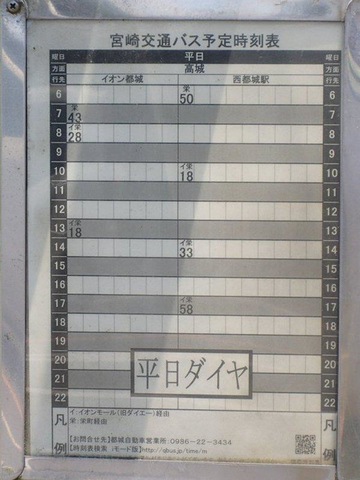 宮崎交通バス予定時刻表
曜日 平日 曜日
方面 高城 方面
行先 イオン都城 西都城駅 行先
6 栄 50 6
7 栄 43 7
8 イ栄 28 8
9 9
10 イ栄 18 10
11 11
12 12
13 イ栄 18 13
14 イ栄 33 14
15 15
16 16
17 栄 58 17
18 18
19 19
20 20
21 21
22 22
平日ダイヤ
凡例
イ:イオンモール(旧ダイエー)経由
栄:栄町経由
【お問合せ先】都城自動車営業所:0986-22-3434
【時刻表検索 iモード版】http://qbus.jp/time/m